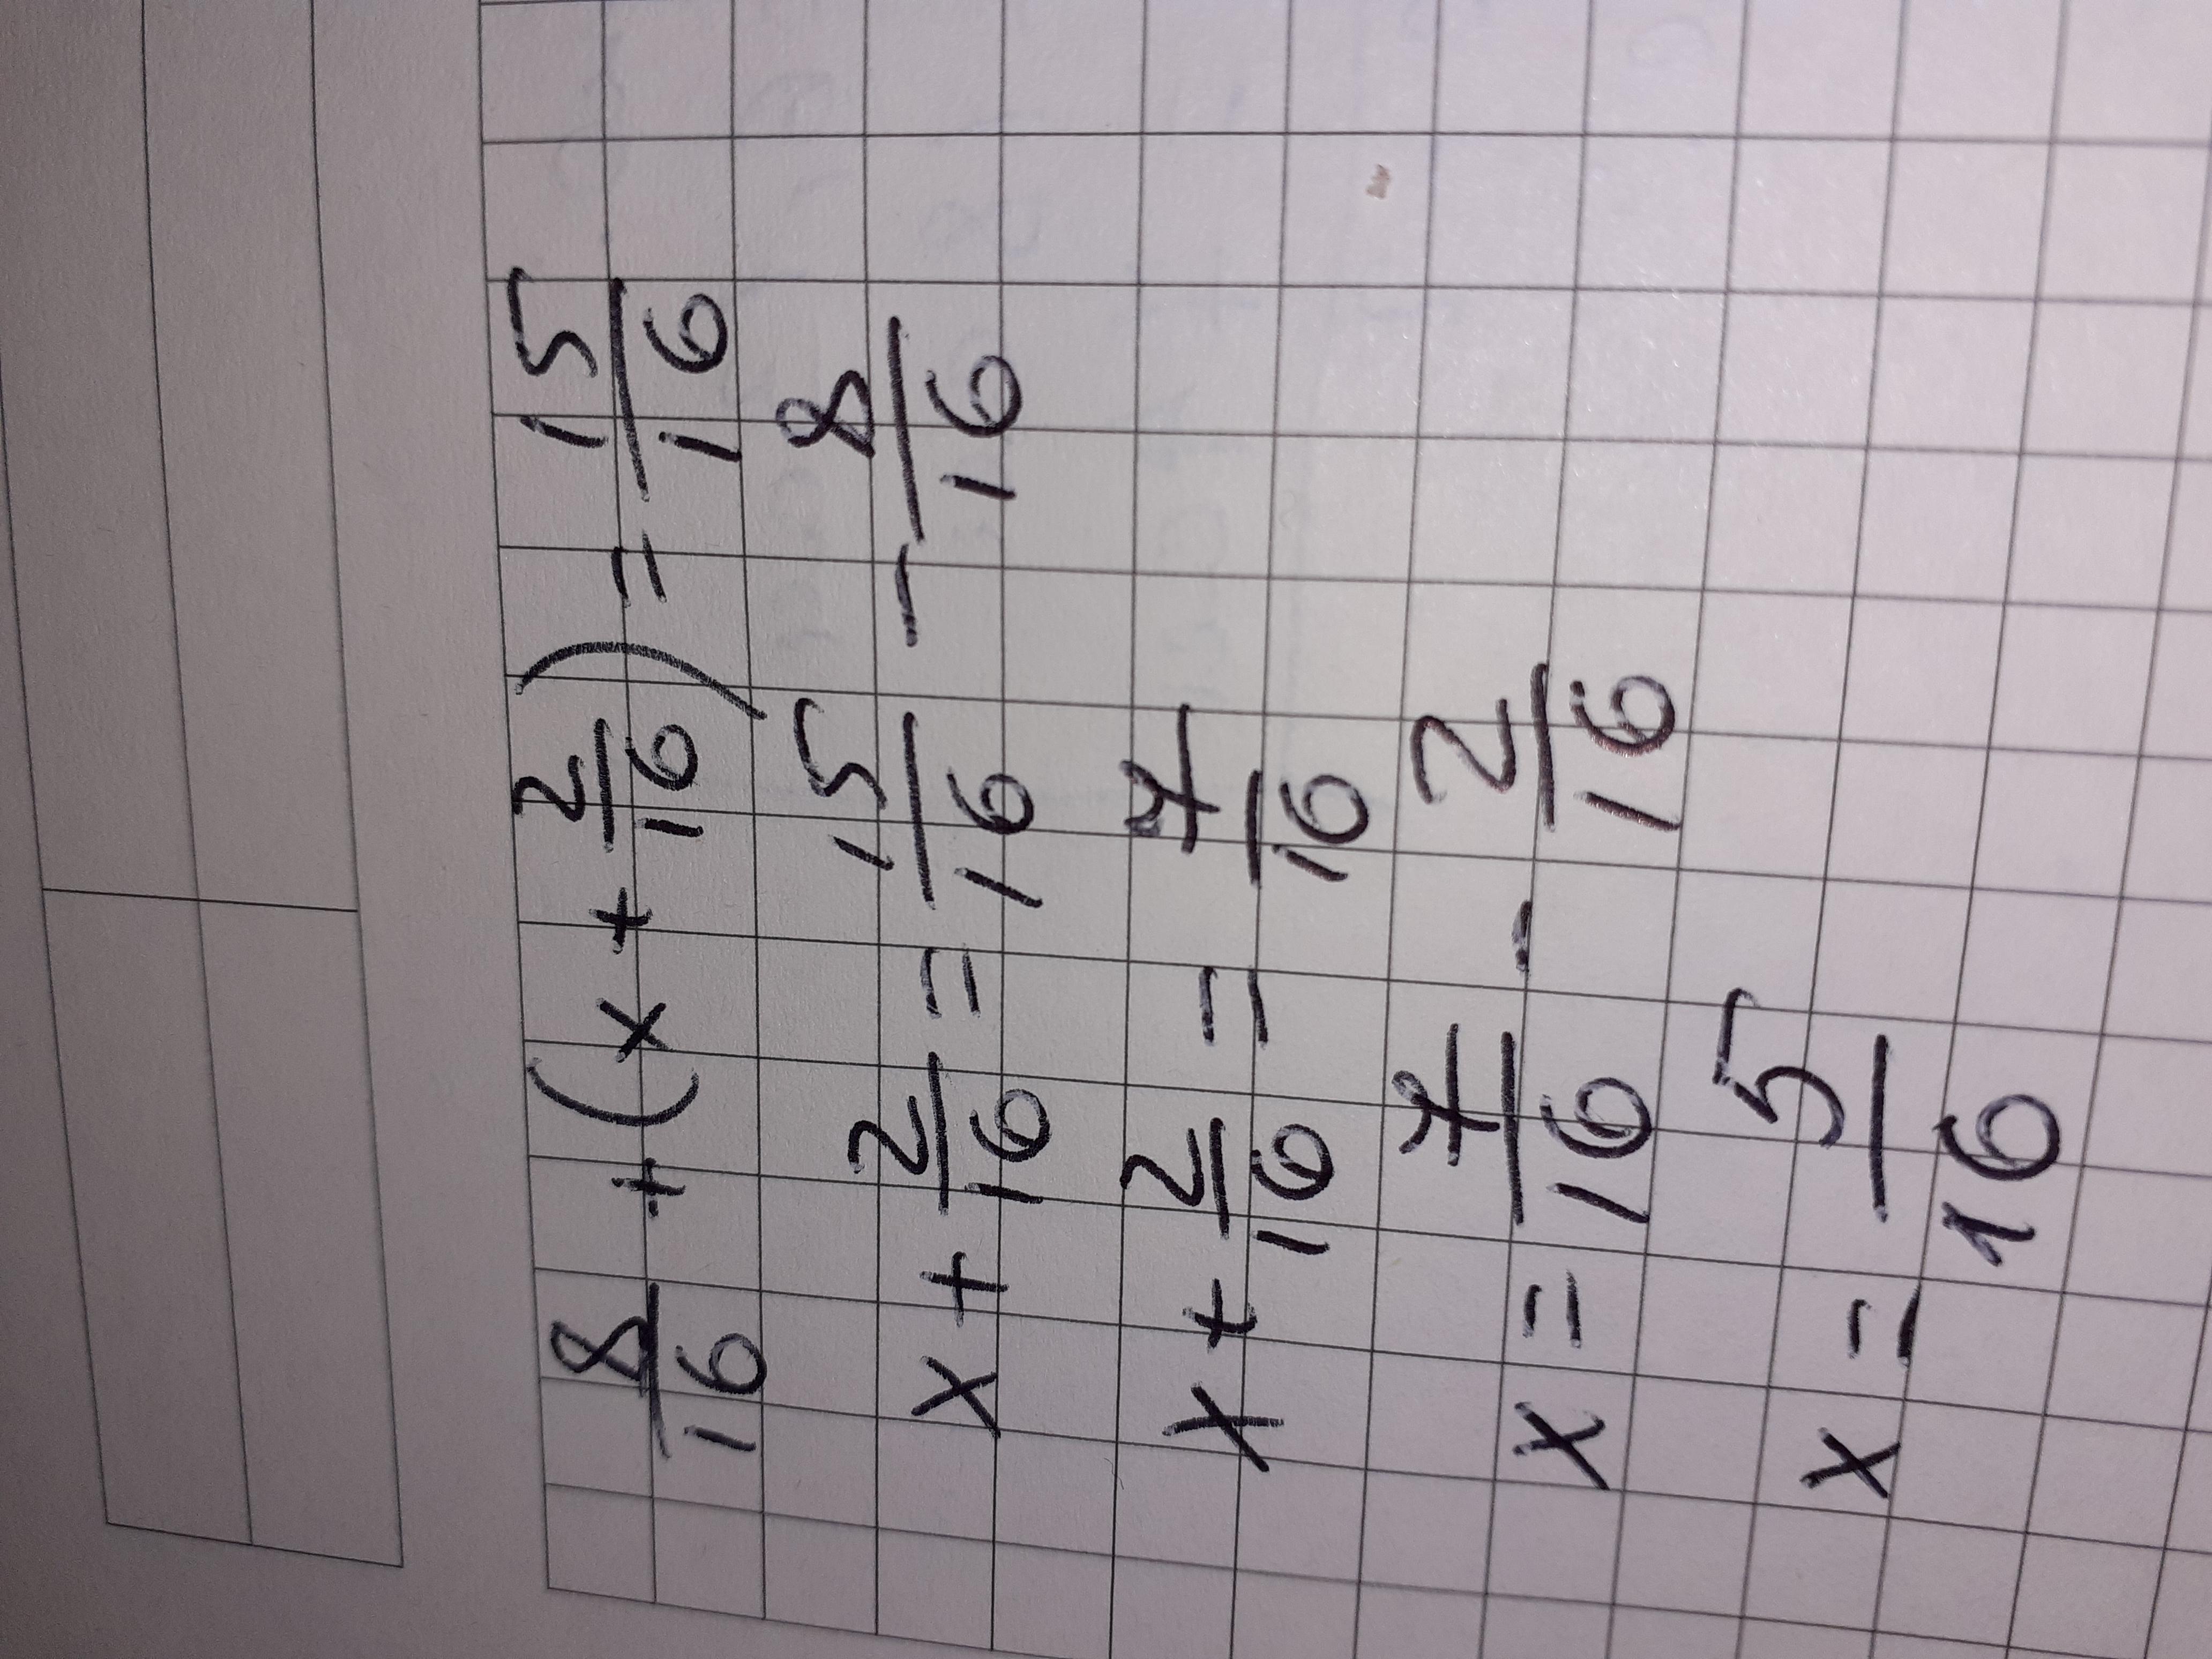 8/16 + (x + 2/16) = 15/16
x + 2/16 = 15/16 - 8/16
x + 2/16 = 7/16
x = 7/16 - 2/16
x = 5/16